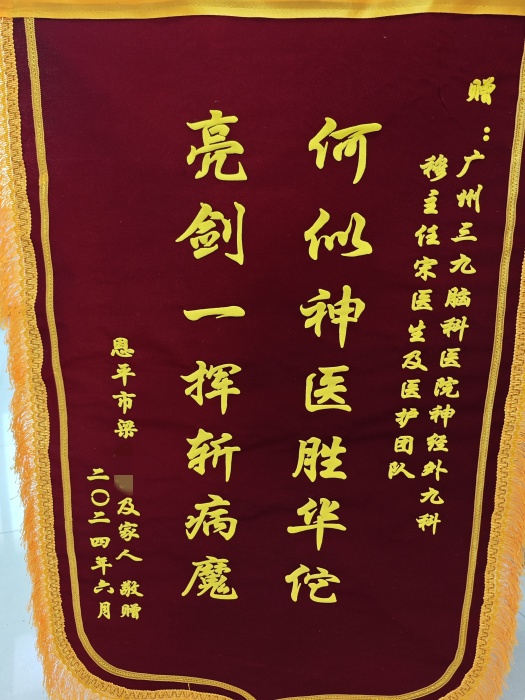 赠：广州三九脑科医院神经外九科
穆主任宋医生及医护团队
何似神医胜华佗
亮剑一挥斩病魔
恩平市梁
及家人 敬赠
二〇二四年六月